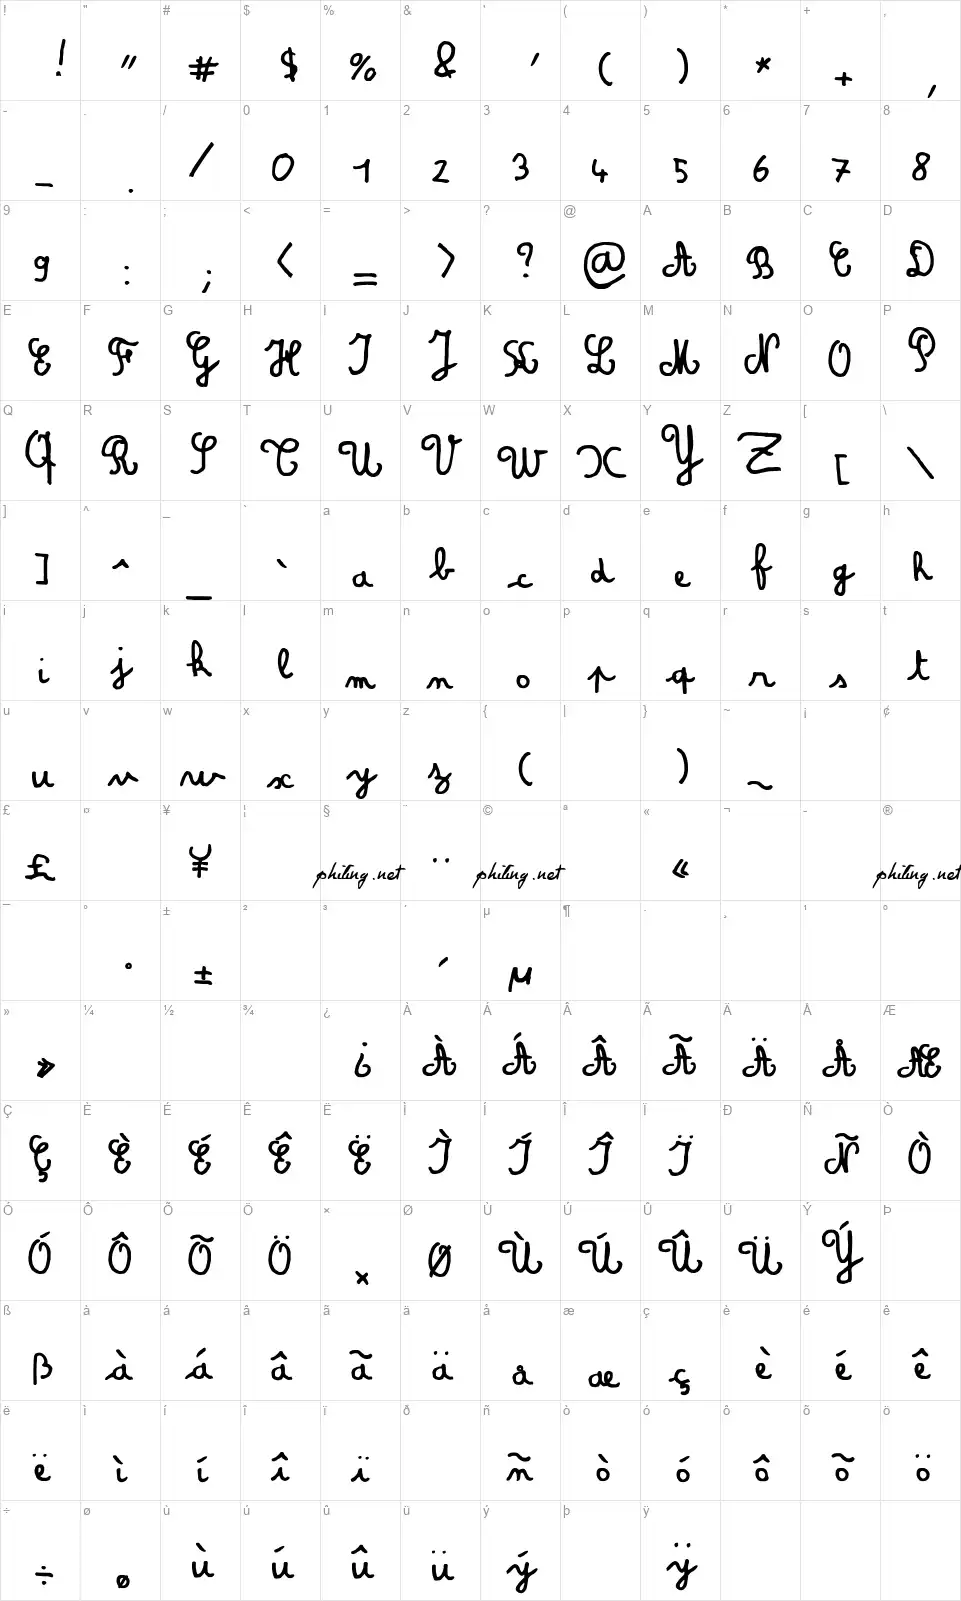 ! " # $ % & ' ( ) * + ,
! " # $ % & ' ( ) * + ,
- . / 0 1 2 3 4 5 6 7 8
- . / 0 1 2 3 4 5 6 7 8
9 : ; < = > ? @ A B C D
9 : ; < = > ? @ A B C D
E F G H I J K L M N O P
E F G H I J K L M N O P
Q R S T U V W X Y Z [ \
Q R S T U V W X Y Z [ \
] ^ _ ` a b c d e f g h
] ^ _ ` a b c d e f g h
i j k l m n o p q r s t
i j k l m n o p q r s t
u v w x y z { | } ~ ¡ ¢
u v w x y z ( ) ~
£ ¤ ¥ ¦ § ¨ © ª « ¬ - ®
£ ¥ philing.net ¨ philing.net « philing.net
¯ ° ± ² ³ ´ µ ¶ · ¸ ¹ º
° ± ´ µ
» ¼ ½ ¾ ¿ À Á Â Ã Ä Å Æ
» ¿ À Á Â Ã Ä Å Æ
Ç È É Ê Ë Ì Í Î Ï Ð Ñ Ò
Ç È É Ê Ë Ì Í Î Ï Ñ Ò
Ó Ô Õ Ö × Ø Ù Ú Û Ü Ý Þ
Ó Ô Õ Ö × Ø Ù Ú Û Ü Ý
ß à á â ã ä å æ ç è é ê
ß à á â ã ä å æ ç è é ê
ë ì í î ï ð ñ ò ó ô õ ö
ë ì í î ï ñ ò ó ô õ ö
÷ ø ù ú û ü ý þ ÿ
÷ ø ù ú û ü ý ÿ